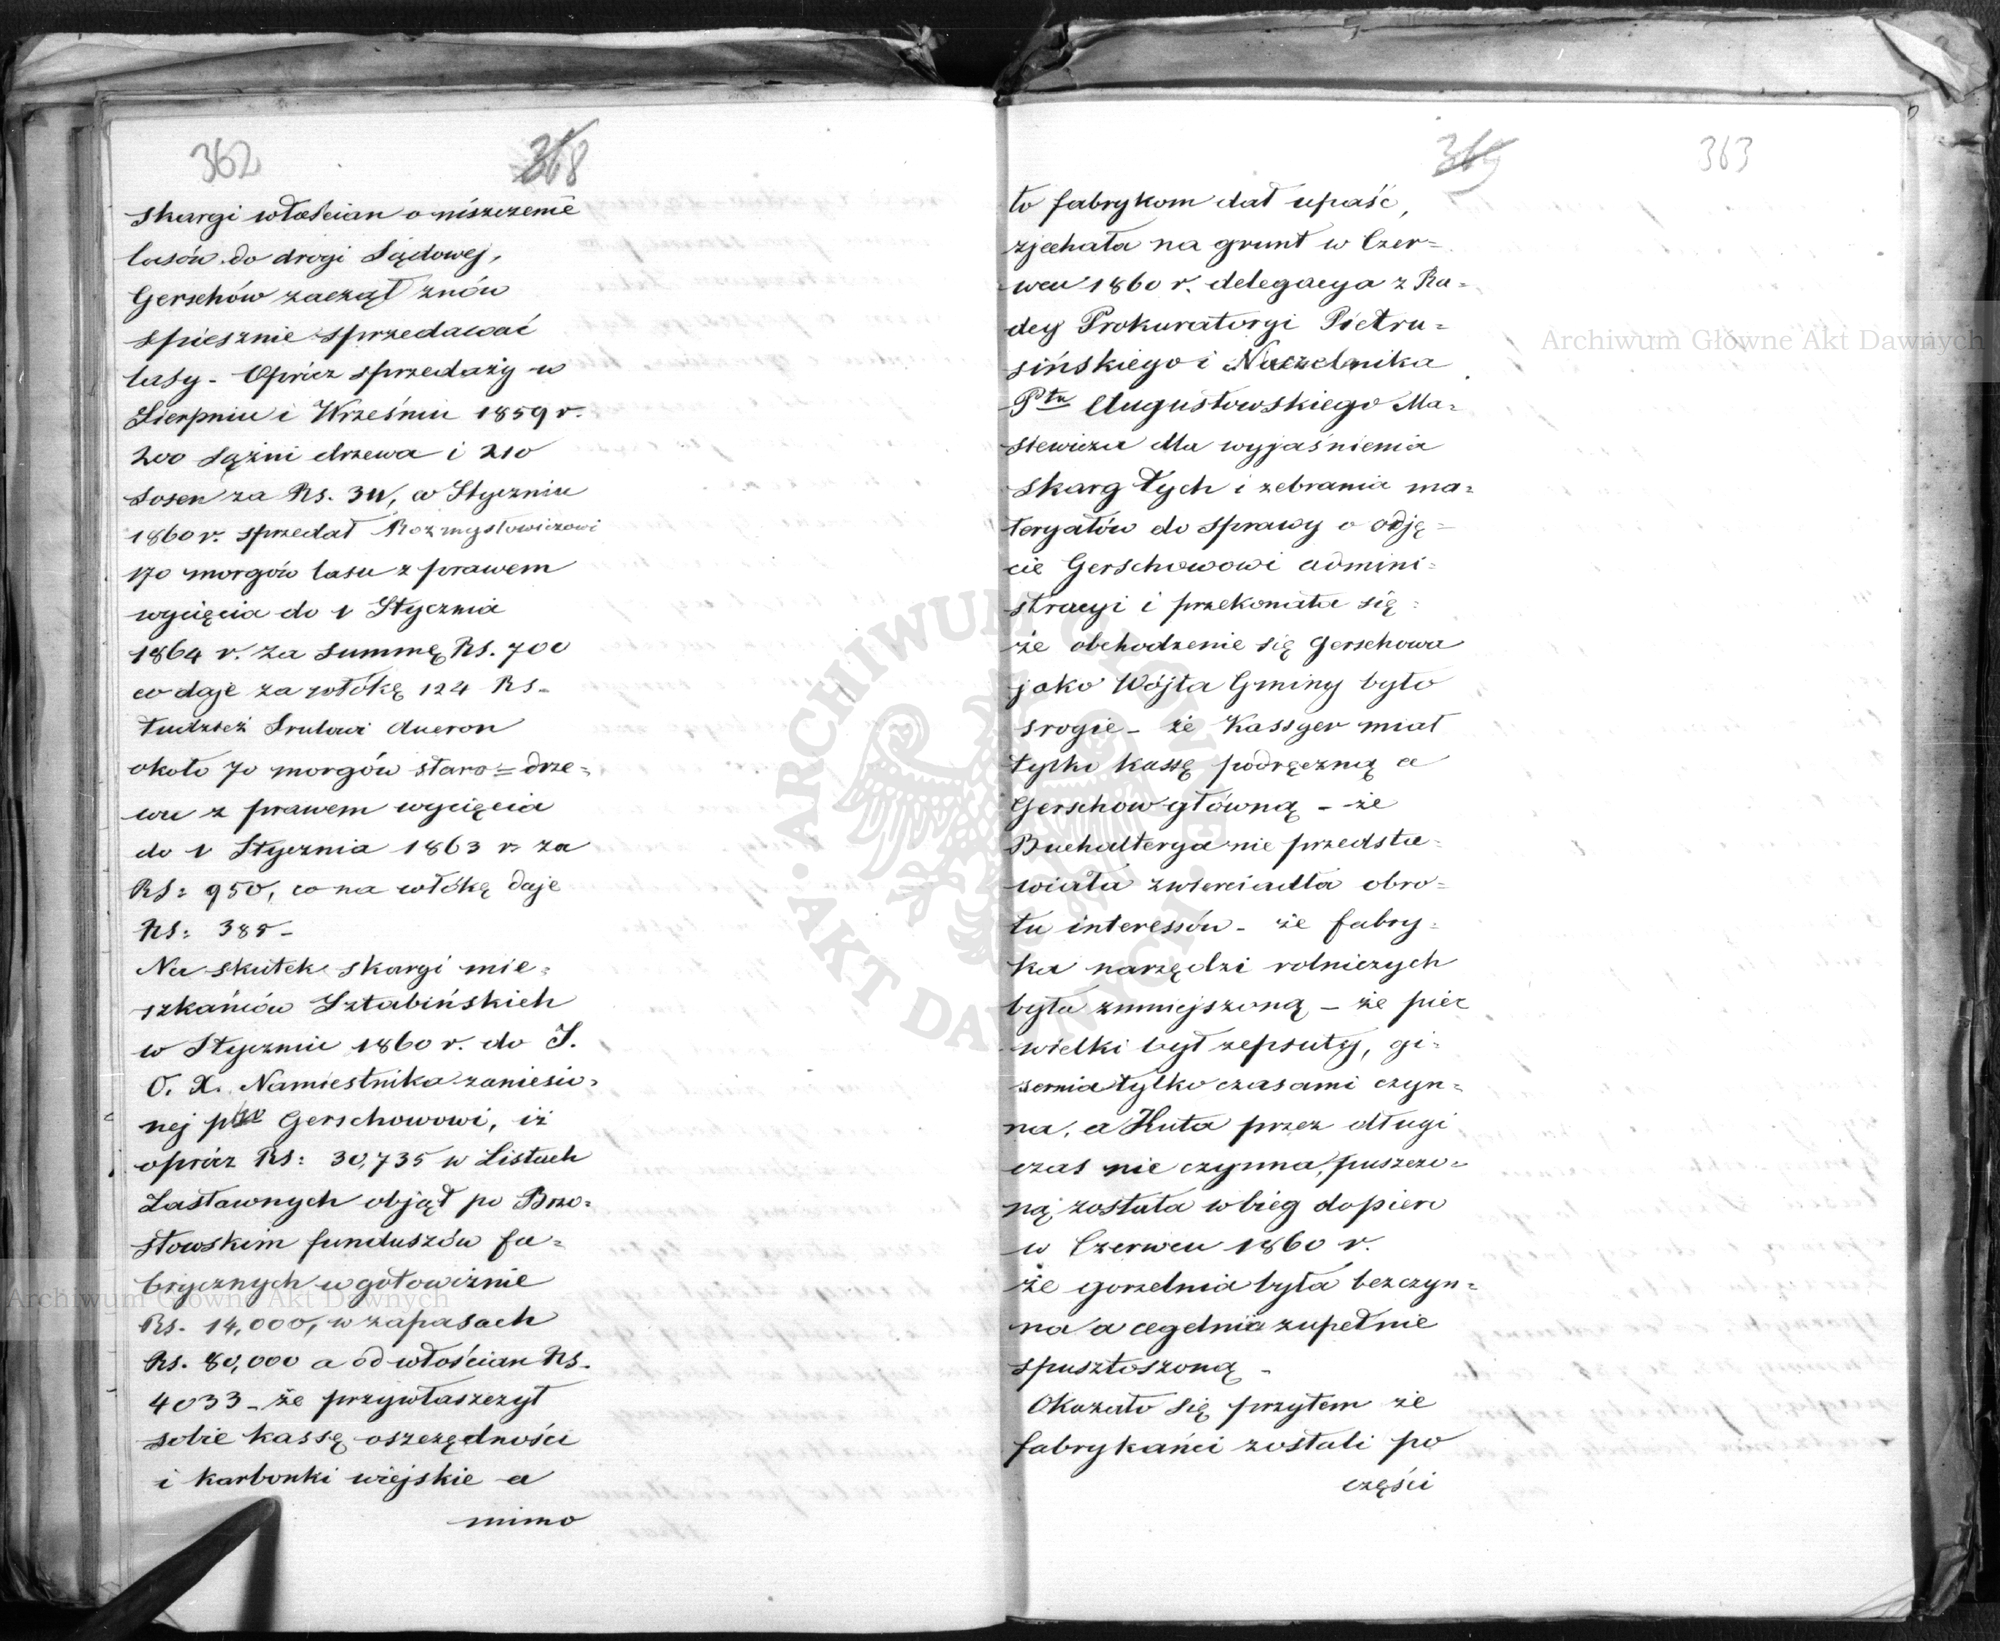 362
368
skargi włościan o niszczenie
lasów do drogi Sądowej,
Gerschów zaczął znów
spiesznie sprzedawać
lasy - Oprócz sprzedaży w
Sierpniu i Wrześniu 1859 r.
200 sążni drzewa i 210
Sosen za Rs. 311, w Styczniu
1860 r. sprzedał Rozmysłowiczowi
170 morgów lasu z prawem
wycięcia do 1 Stycznia
1864 r. za summę Rs. 700
co daje za włókę 124 Rs -
tudzież Srulowi
około 70 morgów staro = drze =
wu z prawem wycięcia
do 1 Stycznia 1863 r. za
RS: 950, co na włókę daje
RS: 388 -
Na skutek skargi mie =
szkańców Sztabińskich
w Styczniu 1860 r. do J.
O. X. Namiestnika zaniesio =
nej Gerschowowi, iż
oprócz RS: 30,735 w Listach
Zastawnych objął po Brzo =
stowskim funduszów fa =
brycznych w gotowiźnie
Rs. 14,000, w zapasach
Rs. 80,000 a od włościan Rs.
4033 - że przywłaszczył
sobie kassę oszczędności
i karbonki wiejskie a
mimo
369
363
to fabrykom dał upaść,
zjechała na grunt w Czer =
wcu 1860 r. delegacya z Ra =
dcy Prokuratorgi Pietru =
sińskiego i Naczelnika
Ptu Augustowskiego Ma =
stewicza dla wyjaśnienia
skarg tych i zebrania ma =
teryałów do sprawy o odję =
cie Gerschowowi admini =
stracyi i przekonała się
że obchodzenie się Gerschowa
jako Wójta Gminy było
srogie - że Kassyer miał
tylko kassę podręczną a
Gerschow główną - że
Buchalterya nie przedsta =
wiała zwierciadła obro =
tu interessów - że fabry =
ka narzędzi rolniczych
była zmniejszoną - że piec
wielki był zepsuty, gi =
sernia tylko czasami czyn =
na, a Huta przez długi
czas nie czynna, puszczo =
ną została w bieg dopiero
w Czerwcu 1860 r.
że gorzelnia była bezczyn =
na a cegelnia zupełnie
spustoszoną -
Okazało się przytem że
fabrykańci zostali po
części
Archiwum Główne Akt Dawnych
Archiwum Główne Akt Dawnych
ARCHIWUM GŁÓWNE · AKT DAWNYCH ·